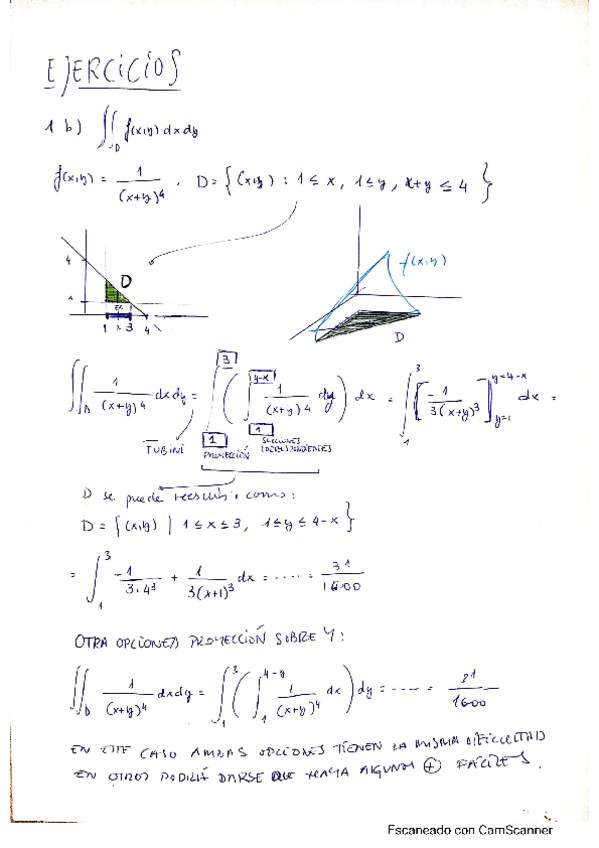 EJERCICIOS
1 b) ∬_D f(x,y) dx dy
f(x,y) = 1/(x+y)^4 . D = { (x,y) : 1 ≤ x, 1 ≤ y, x+y ≤ 4 }
4 D f(x,y)
1 x 3 4 D
∬_D 1/(x+y)^4 dx dy = ∫_1^3 ( ∫_1^{4-x} 1/(x+y)^4 dy ) dx = ∫_1^3 [ -1/3(x+y)^3 ]_{y=1}^{y=4-x} dx =
TUBINI PROYECCIÓN SECCIONES CORRESPONDIENTES
D se puede reescribir como:
D = { (x,y) | 1 ≤ x ≤ 3, 1 ≤ y ≤ 4-x }
= ∫_1^3 -1/3·4^3 + 1/3(x+1)^3 dx = ..... = 31/1600
OTRA OPCIONES PROYECCIÓN SOBRE Y:
∬_D 1/(x+y)^4 dx dy = ∫_1^3 ( ∫_1^{4-y} 1/(x+y)^4 dx ) dy = ..... = 1600
EN ESTE CASO AMBAS OPCIONES TIENEN LA MISMA DIFICULTAD
EN OTROS PODRÍA DARSE QUE HAYA ALGUNOS ⊕ FÁCILES.
Escaneado con CamScanner